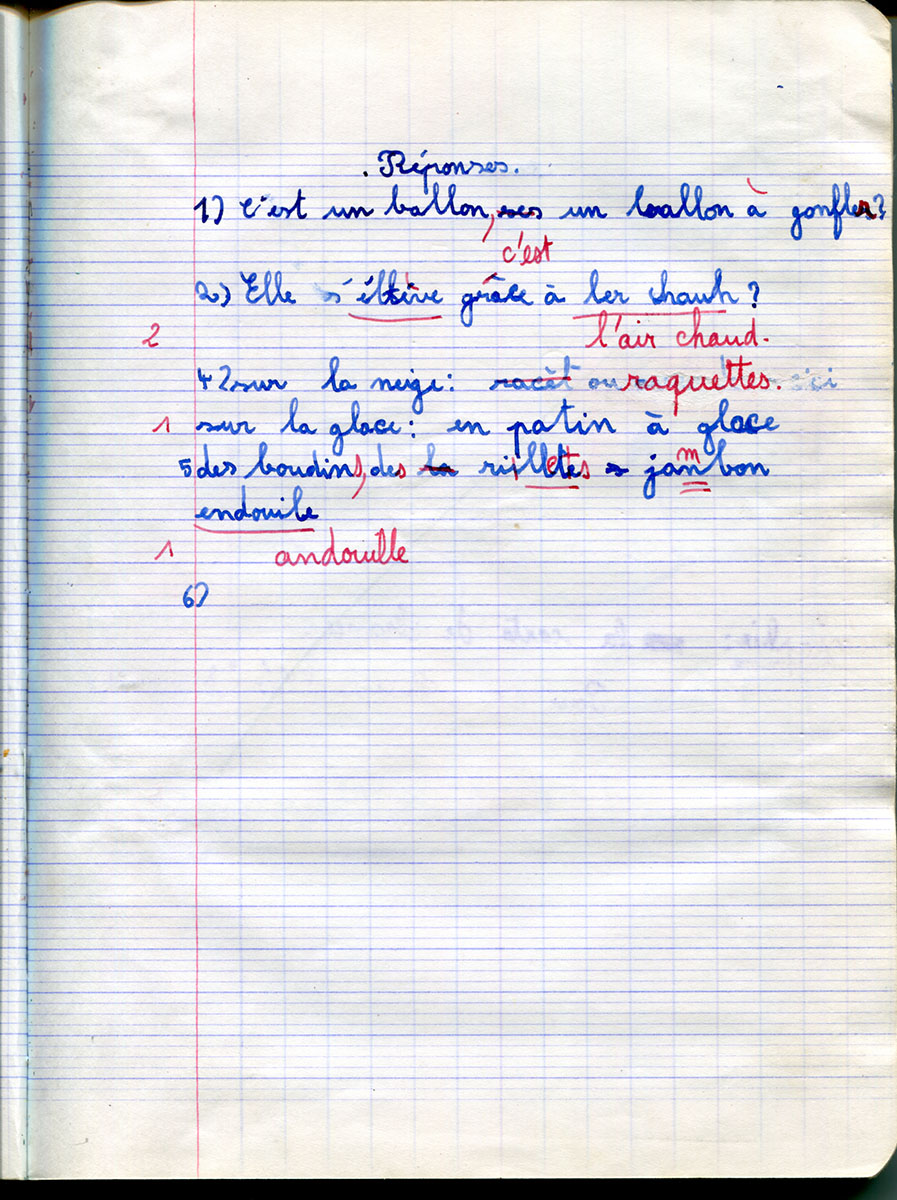 . Réponses.
1) C'est un ballon, un ballon à gonfler?
c'est
2) Elle s'élève grâce à ler chauh ?
2 l'air chaud.
4 2 sur la neige : racèt ou raquettes.
1 sur la glace : en patin à glace
5 des boudins, des rillettes jambon
endouile
1 andouille
6)